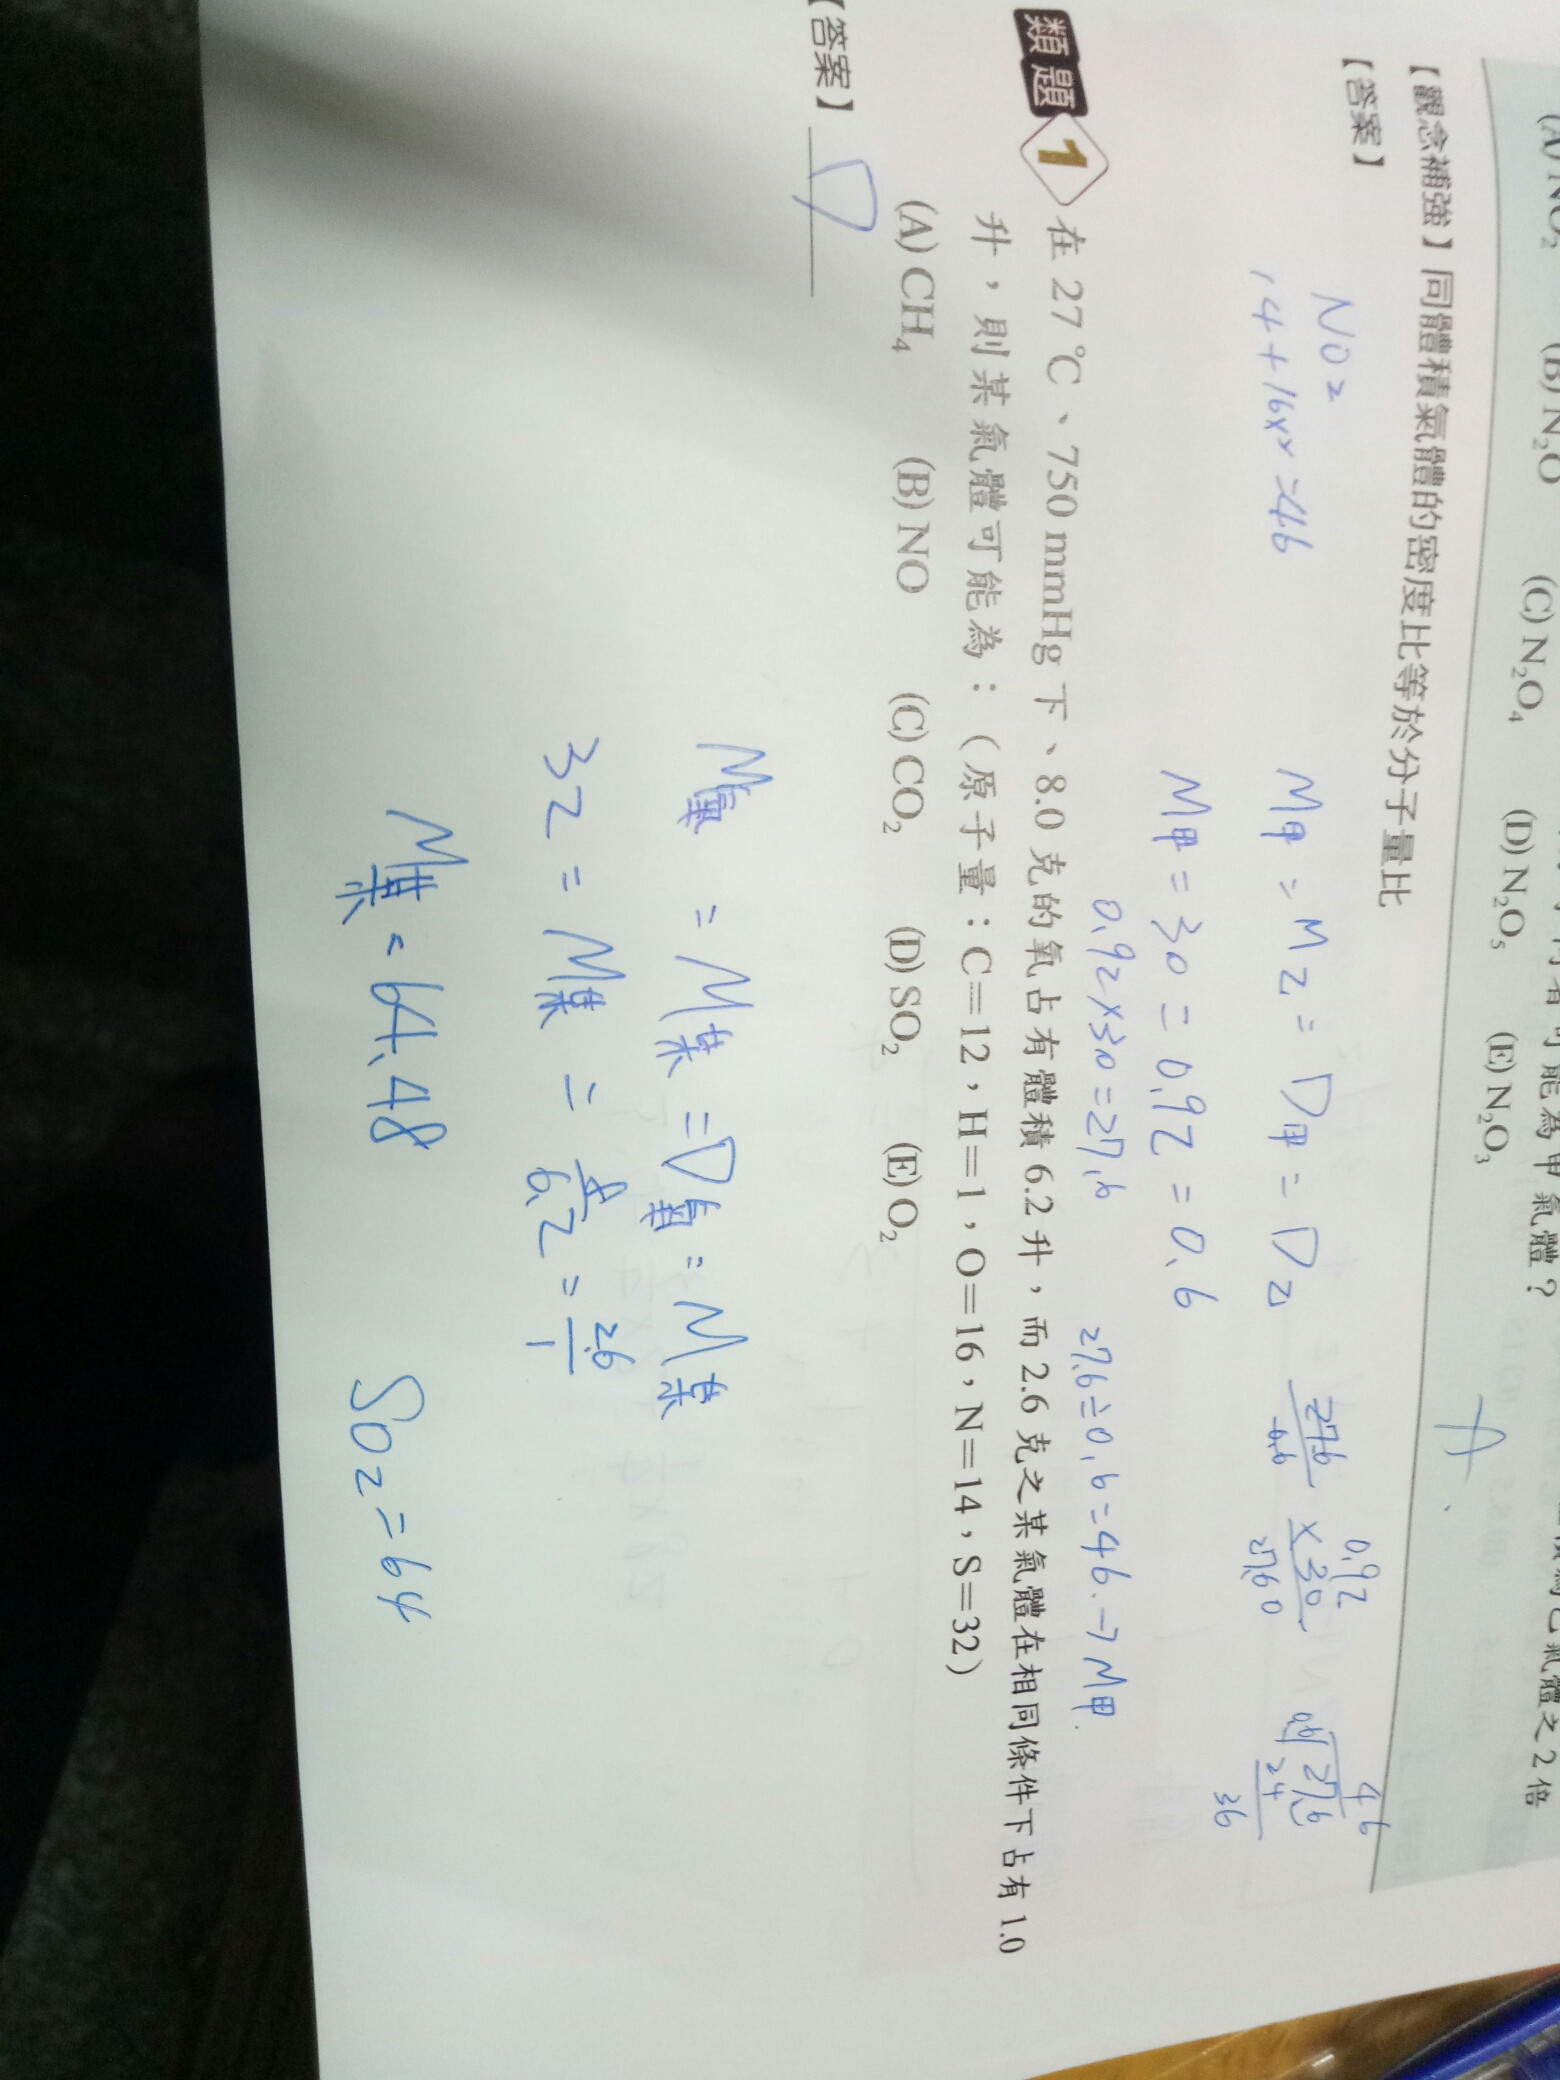 可能為甲氣體？
(B) N₂O (C) N₂O₄ (D) N₂O₅ (E) N₂O₃
A
【觀念補強】同體積氣體的密度比等於分子量比
【答案】
NO₂
14+16×2=46
M甲:M乙=D甲=D乙
M甲=30=0.92=0.6
0.92×30=27.6
27.6÷0.6=46.→M甲.
27.6
0.6
0.92
×30
27.60
46
0.6 27.6
24
36
類題 1 在 27 ℃、750 mmHg 下、8.0 克的氧占有體積 6.2 升，而 2.6 克之某氣體在相同條件下占有 1.0
升，則某氣體可能為：（原子量：C=12，H=1，O=16，N=14，S=32）
(A) CH₄ (B) NO (C) CO₂ (D) SO₂ (E) O₂
【答案】 D
M氧=M某=D氧=M某
32=M某=8/6.2=2.6/1
M某=64.48
SO₂=64